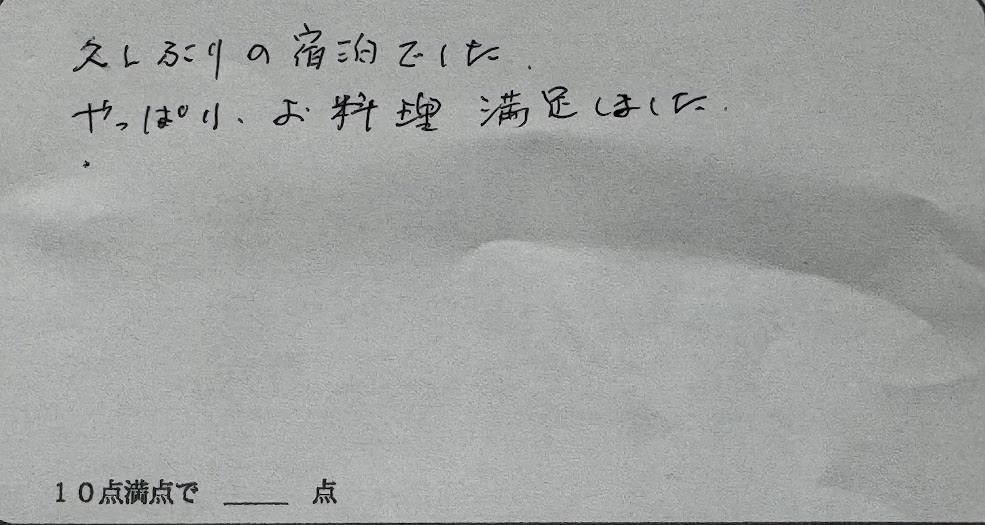 久しぶりの宿泊でした.
やっぱり、お料理 満足しました.
10点満点で ____ 点